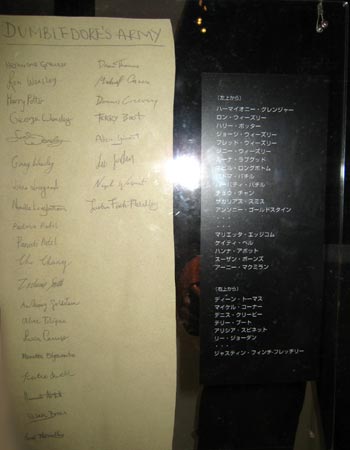 DUMBLEDORE'S ARMY
Hermione Granger
Ron Weasley
Harry Potter
George Weasley
Weasley
Ginny Weasley
Luna Lovegood
Neville Longbottom
Padma Patil
Parvati Patil
Cho Chang
Smith
Anthony Goldstein
Luca Caruso
Marietta Edgecombe
Susan Bones
Dean Thomas
Michael Corner
Dennis Creevey
TERRY Boot
Alicia Spinnet
Lee Jordan
Nigel
Justin Finch-Fletchley
（左上から）
ハーマイオニー・グレンジャー
ロン・ウィーズリー
ハリー・ポッター
ジョージ・ウィーズリー
フレッド・ウィーズリー
ジニー・ウィーズリー
ルーナ・ラブグッド
ネビル・ロングボトム
パドマ・パチル
パーバティ・パチル
チョウ・チャン
ザカリアス・スミス
アンソニー・ゴールドスタイン
・・・
・・・
マリエッタ・エッジコム
ケイティ・ベル
ハンナ・アボット
スーザン・ボーンズ
アーニー・マクミラン
（右上から）
ディーン・トーマス
マイケル・コーナー
デニス・クリービー
テリー・ブート
アリシア・スピネット
リー・ジョーダン
・・・
ジャスティン・フィンチ-フレッチリー